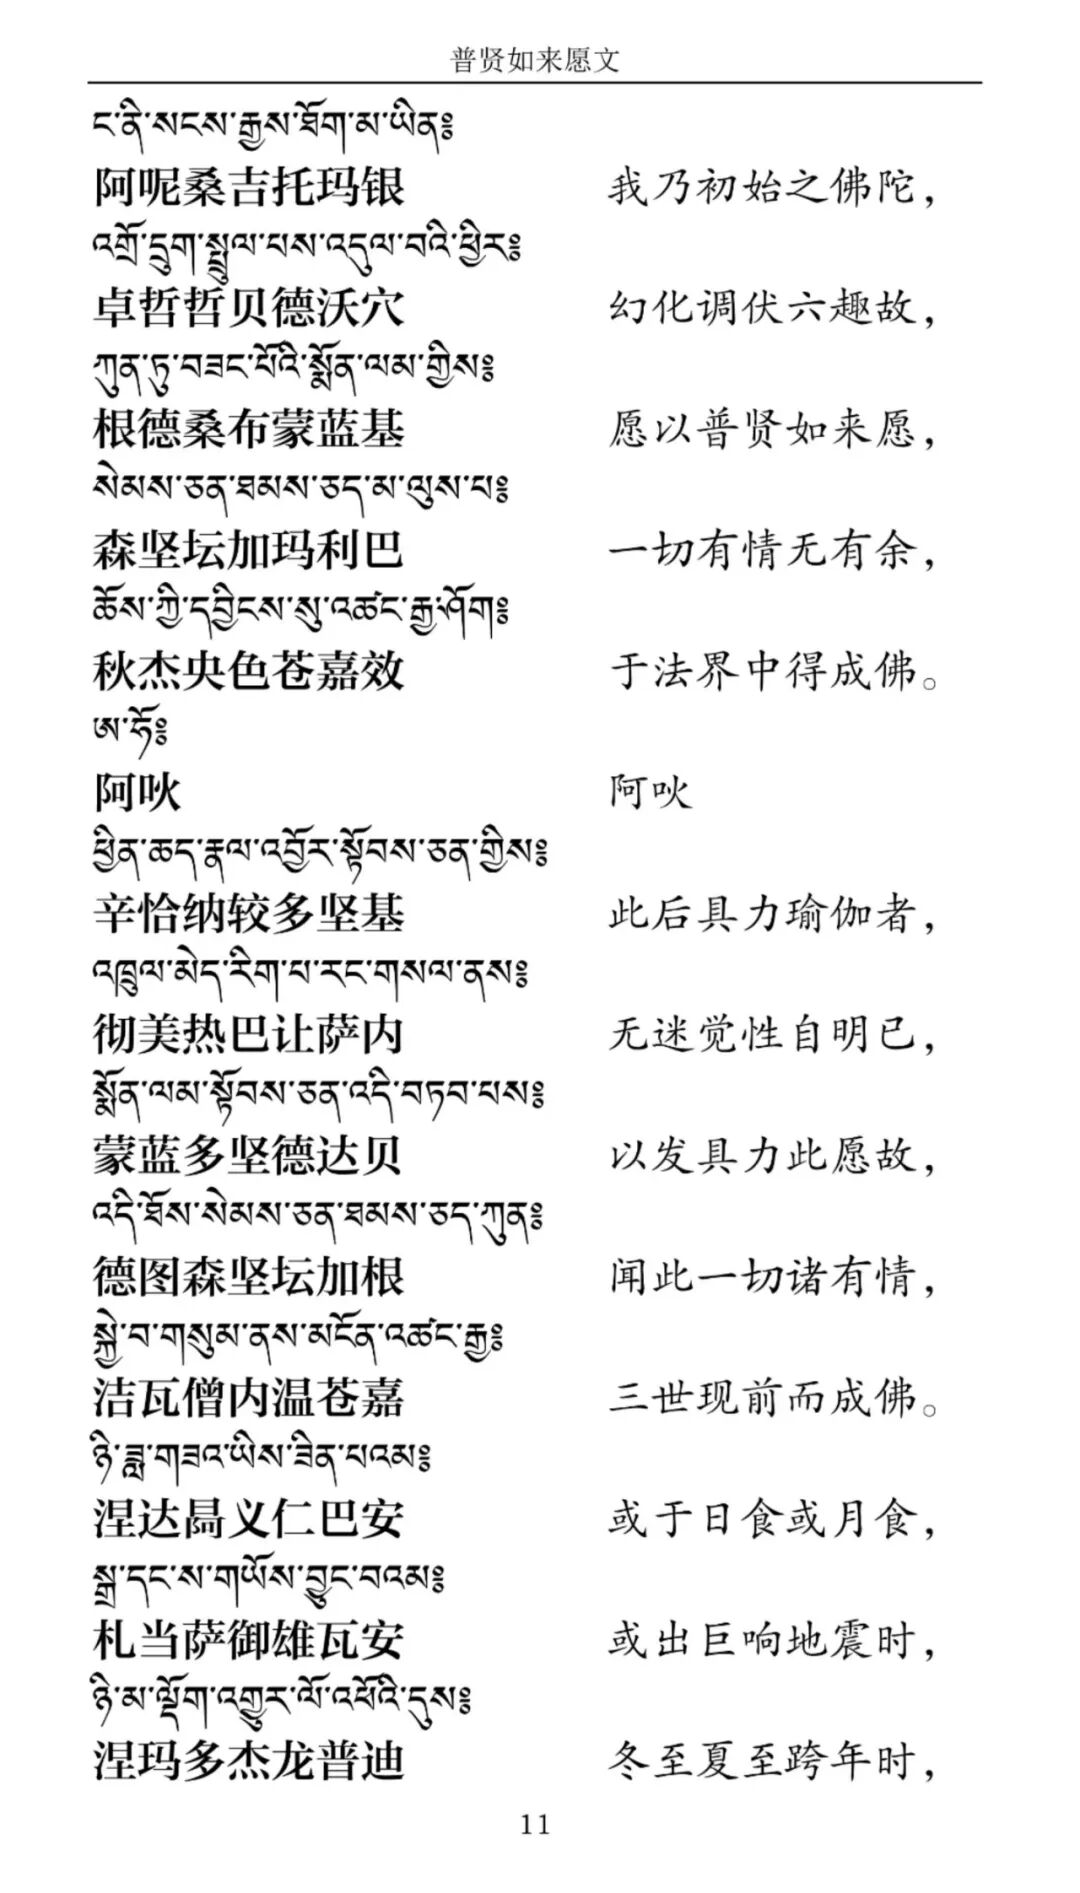 普贤如来愿文
ང་ནི་སངས་རྒྱས་ཐོག་མ་ཡིན༔
阿呢桑吉托玛银 我乃初始之佛陀，
འགྲོ་དྲུག་སྤྲུལ་པས་འདུལ་བའི་ཕྱིར༔
卓哲哲贝德沃穴 幻化调伏六趣故，
ཀུན་ཏུ་བཟང་པོའི་སྨོན་ལམ་གྱིས༔
根德桑布蒙蓝基 愿以普贤如来愿，
སེམས་ཅན་ཐམས་ཅད་མ་ལུས་པ༔
森坚坛加玛利巴 一切有情无有余，
ཆོས་ཀྱི་དབྱིངས་སུ་འཚང་རྒྱ་ཤོག༔
秋杰央色苍嘉效 于法界中得成佛。
ཨ་ཧོ༔
阿吙 阿吙
ཕྱིན་ཆད་རྣལ་འབྱོར་སྟོབས་ཅན་གྱིས༔
辛恰纳较多坚基 此后具力瑜伽者，
འཁྲུལ་མེད་རིག་པ་རང་གསལ་ནས༔
彻美热巴让萨内 无迷觉性自明已，
སྨོན་ལམ་སྟོབས་ཅན་འདི་བཏབ་པས༔
蒙蓝多坚德达贝 以发具力此愿故，
འདི་ཐོས་སེམས་ཅན་ཐམས་ཅད་ཀུན༔
德图森坚坛加根 闻此一切诸有情，
སྐྱེ་བ་གསུམ་ནས་མངོན་འཚང་རྒྱ༔
洁瓦僧内温苍嘉 三世现前而成佛。
ཉི་ཟླ་གཟའ་ཡིས་ཟིན་པའམ༔
涅达咼义仁巴安 或于日食或月食，
སྒྲ་དང་ས་གཡོས་བྱུང་བའམ༔
札当萨御雄瓦安 或出巨响地震时，
ཉི་མ་ལྡོག་འགྱུར་ལོ་འཕོའི་དུས༔
涅玛多杰龙普迪 冬至夏至跨年时，
11